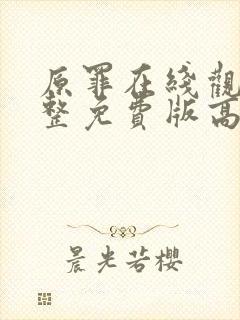 原罪在綫觀
整免費版高
晨光若櫻